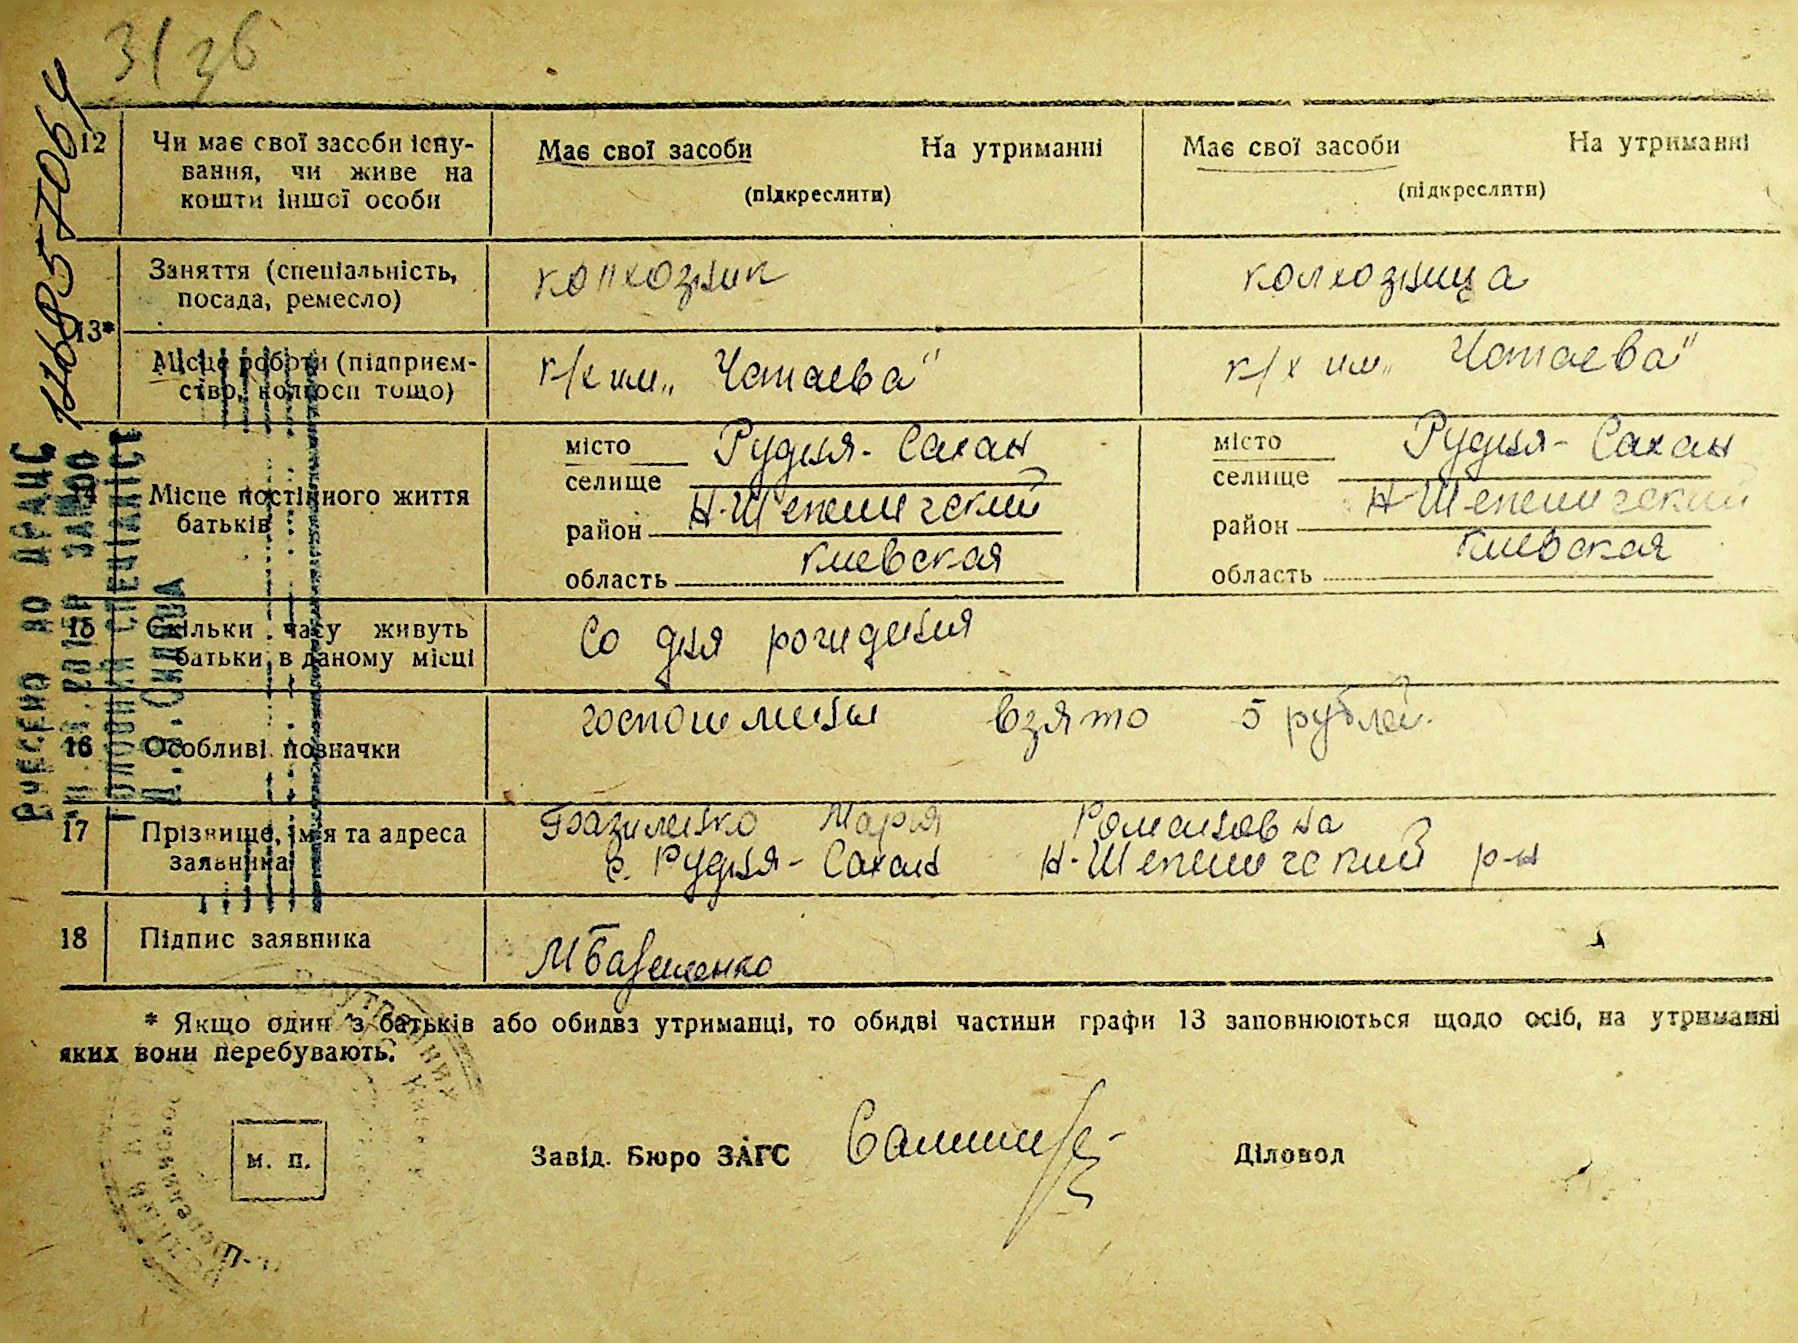 3136
12 Чи має свої засоби існу- Має свої засоби На утриманні Має свої засоби На утриманні
вання, чи живе на (підкреслити) (підкреслити)
кошти іншої особи
13* Заняття (спеціальність, колхозник колхозница
посада, ремесло)
Місце роботи (підприєм- к/х им„ Чапаева" к/х им„ Чапаева"
ство, колгосп тощо)
14 Місце постійного життя місто Рудня-Сахан місто Рудня-Сахан
батьків селище селище
район Н-Шепеличский район Н-Шепеличский
область киевская область киевская
15 Скільки часу живуть Со дня рождения
батьки в даному місці
16 Особливі позначки госпошлины взято 5 рублей.
17 Прізвище, імя та адреса Базиленко Мария Романовна
заявника с. Рудня-Сахан Н-Шепеличский р-н
18 Підпис заявника МБазиленко
* Якщо один з батьків або обидва утриманці, то обидві частини графи 13 заповнюються щодо осіб, на утриманні
яких вони перебувають.
м. п. Завід. Бюро ЗАГС Діловод
ВНЕСЕНО ДО ДРАЦС
ГОЛОВНИЙ СПЕЦІАЛІСТ